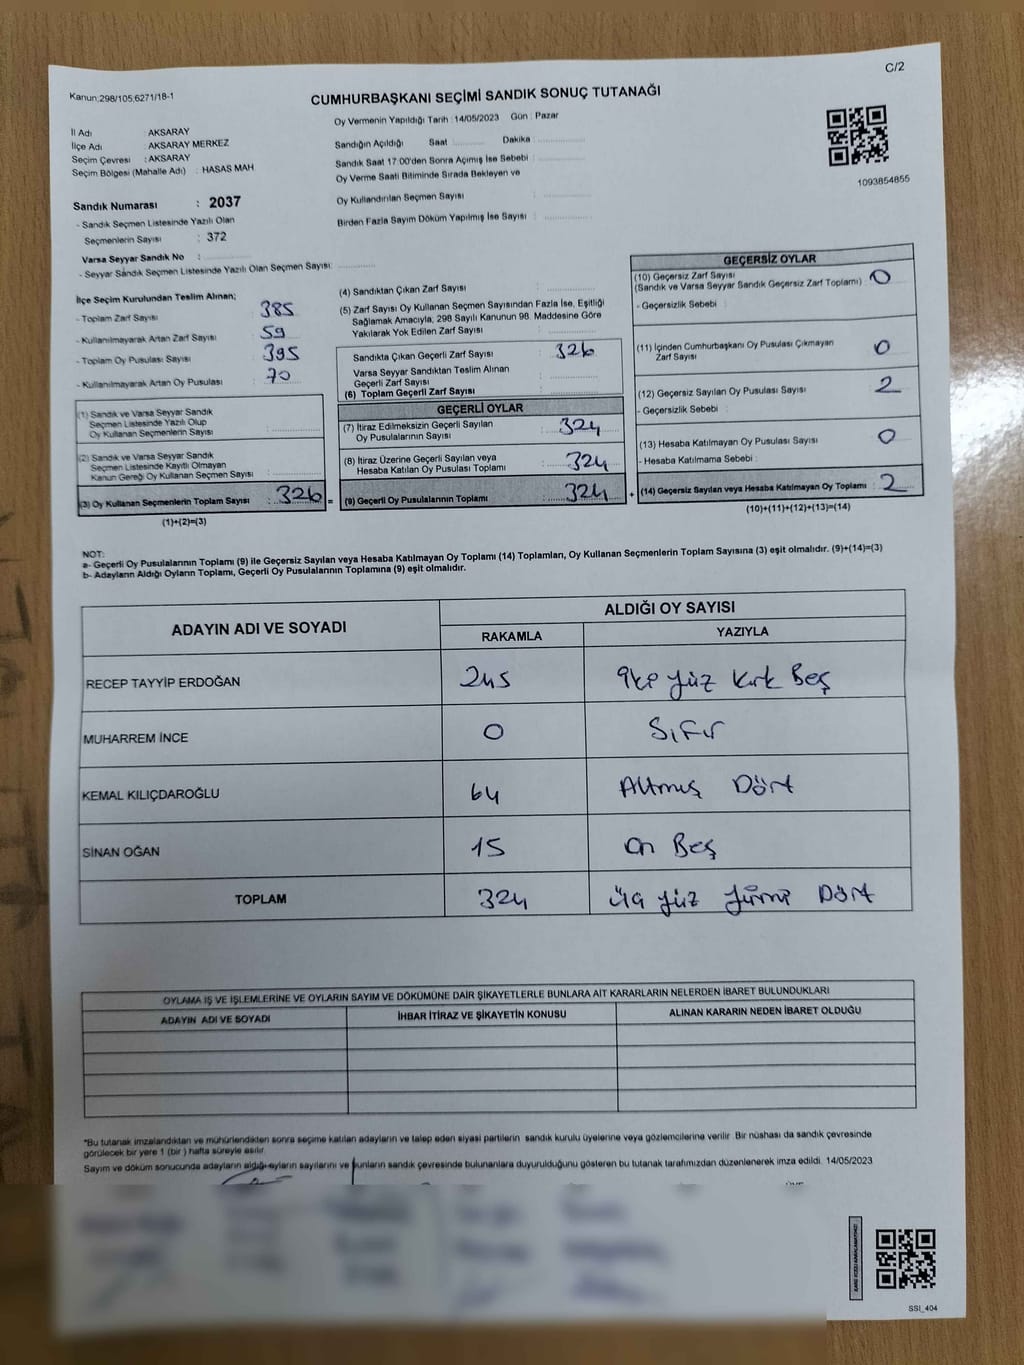 C/2
Kanun:298/105,6271/18-1
CUMHURBAŞKANI SEÇİMİ SANDIK SONUÇ TUTANAĞI
Oy Vermenin Yapıldığı Tarih : 14/05/2023 Gün : Pazar
İl Adı : AKSARAY
İlçe Adı : AKSARAY MERKEZ
Seçim Çevresi : AKSARAY
Seçim Bölgesi (Mahalle Adı) : HASAS MAH
Sandık Numarası : 2037
- Sandık Seçmen Listesinde Yazılı Olan
Seçmenlerin Sayısı : 372
Varsa Seyyar Sandık No :
- Seyyar Sandık Seçmen Listesinde Yazılı Olan Seçmen Sayısı:
Sandığın Açıldığı Saat Dakika
Sandık Saat 17:00'den Sonra Açımış İse Sebebi :
Oy Verme Saati Bitiminde Sırada Bekleyen ve
Oy Kullandırılan Seçmen Sayısı :
Birden Fazla Sayım Döküm Yapılmış İse Sayısı :
1093854855
İlçe Seçim Kurulundan Teslim Alınan;
- Toplam Zarf Sayısı : 385
- Kullanılmayarak Artan Zarf Sayısı : 59
- Toplam Oy Pusulası Sayısı : 395
- Kullanılmayarak Artan Oy Pusulası : 70
(1) Sandık ve Varsa Seyyar Sandık
Seçmen Listesinde Yazılı Olup
Oy Kullanan Seçmenlerin Sayısı :
(2) Sandık ve Varsa Seyyar Sandık
Seçmen Listesinde Kayıtlı Olmayan
Kanun Gereği Oy Kullanan Seçmen Sayısı :
(3) Oy Kullanan Seçmenlerin Toplam Sayısı : 326 =
(1)+(2)=(3)
(4) Sandıktan Çıkan Zarf Sayısı :
(5) Zarf Sayısı Oy Kullanan Seçmen Sayısından Fazla İse, Eşitliği
Sağlamak Amacıyla, 298 Sayılı Kanunun 98. Maddesine Göre
Yakılarak Yok Edilen Zarf Sayısı :
Sandıkta Çıkan Geçerli Zarf Sayısı : 326
Varsa Seyyar Sandıktan Teslim Alınan
Geçerli Zarf Sayısı
(6) Toplam Geçerli Zarf Sayısı :
GEÇERLİ OYLAR
(7) İtiraz Edilmeksizin Geçerli Sayılan
Oy Pusulalarının Sayısı : 324
(8) İtiraz Üzerine Geçerli Sayılan veya
Hesaba Katılan Oy Pusulası Toplamı : 324
(9) Geçerli Oy Pusulalarının Toplamı : 324 +
GEÇERSİZ OYLAR
(10) Geçersiz Zarf Sayısı
(Sandık ve Varsa Seyyar Sandık Geçersiz Zarf Toplamı) : 0
- Geçersizlik Sebebi :
(11) İçinden Cumhurbaşkanı Oy Pusulası Çıkmayan
Zarf Sayısı : 0
(12) Geçersiz Sayılan Oy Pusulası Sayısı : 2
- Geçersizlik Sebebi :
(13) Hesaba Katılmayan Oy Pusulası Sayısı : 0
- Hesaba Katılmama Sebebi :
(14) Geçersiz Sayılan veya Hesaba Katılmayan Oy Toplamı : 2
(10)+(11)+(12)+(13)=(14)
NOT:
a- Geçerli Oy Pusulalarının Toplamı (9) ile Geçersiz Sayılan veya Hesaba Katılmayan Oy Toplamı (14) Toplamları, Oy Kullanan Seçmenlerin Toplam Sayısına (3) eşit olmalıdır. (9)+(14)=(3)
b- Adayların Aldığı Oyların Toplamı, Geçerli Oy Pusulalarının Toplamına (9) eşit olmalıdır.
ADAYIN ADI VE SOYADI ALDIĞI OY SAYISI
RAKAMLA YAZIYLA
RECEP TAYYİP ERDOĞAN 245 İki yüz Kırk Beş
MUHARREM İNCE 0 Sıfır
KEMAL KILIÇDAROĞLU 64 Altmış Dört
SİNAN OĞAN 15 On Beş
TOPLAM 324 Üç yüz yirmi Dört
OYLAMA İŞ VE İŞLEMLERİNE VE OYLARIN SAYIM VE DÖKÜMÜNE DAİR ŞİKAYETLERLE BUNLARA AİT KARARLARIN NELERDEN İBARET BULUNDUKLARI
ADAYIN ADI VE SOYADI İHBAR İTİRAZ VE ŞİKAYETİN KONUSU ALINAN KARARIN NEDEN İBARET OLDUĞU
*Bu tutanak imzalandıktan ve mühürlendikten sonra seçime katılan adayların ve talep eden siyasi partilerin sandık kurulu üyelerine veya gözlemcilerine verilir. Bir nüshası da sandık çevresinde
görülecek bir yere 1 (bir) hafta süreyle asılır.
Sayım ve döküm sonucunda adayların aldığı oyların sayılarını ve bunların sandık çevresinde bulunanlara duyurulduğunu gösteren bu tutanak tarafımızdan düzenlenerek imza edildi. 14/05/2023
SSI_404